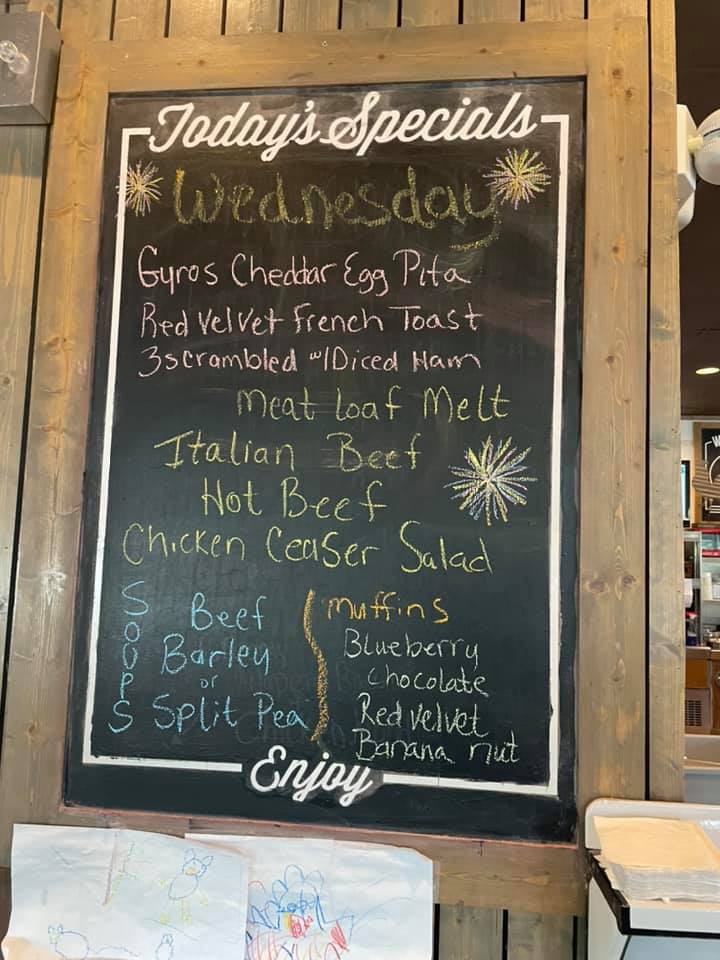 Today's Specials
Wednesday
Gyros Cheddar Egg Pita
Red Velvet French Toast
3 scrambled w/ Diced Ham
Meat loaf Melt
Italian Beef
Hot Beef
Chicken Ceaser Salad
SOUPS
Beef
Barley
or
Split Pea
Muffins
Blueberry
Chocolate
Red velvet
Banana nut
Enjoy